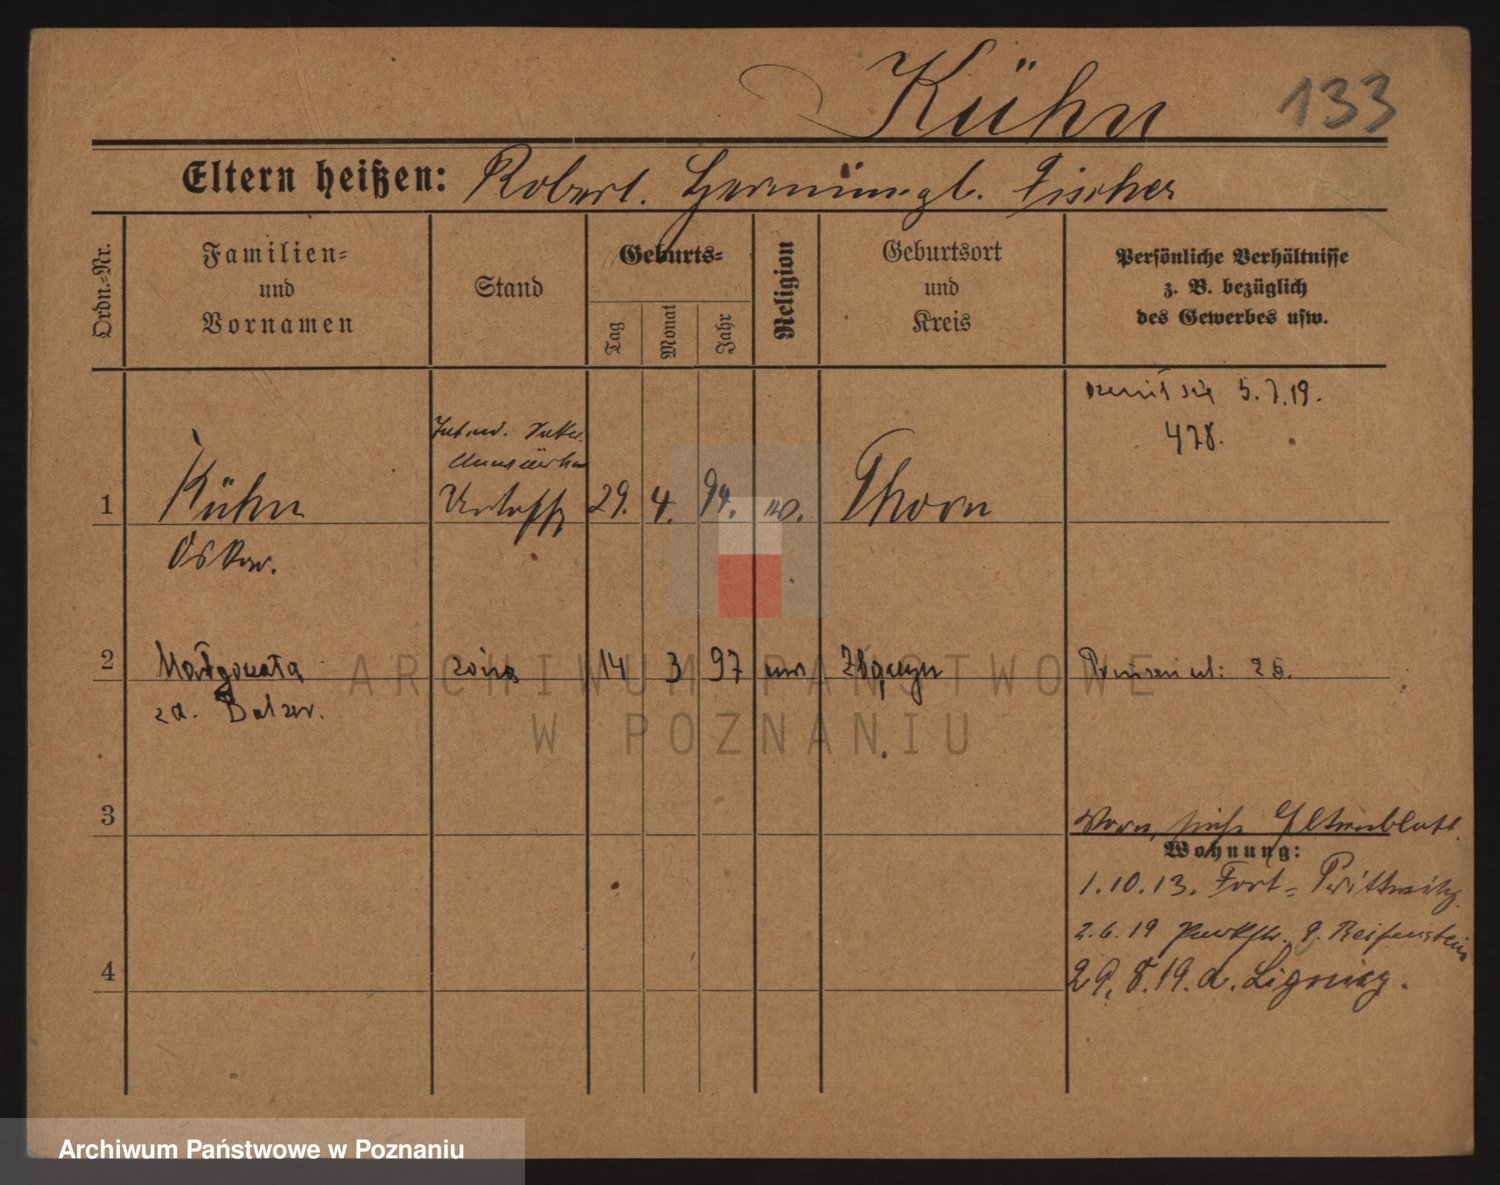 Kühn 133
Eltern heißen: Robert. Hermine gb. Fischer
Ordn.=Nr.
Familien=
und
Vornamen
Stand
Geburts=
Tag
Monat
Jahr
Religion
Geburtsort
und
Kreis
Persönliche Verhältnisse
z. B. bezüglich
des Gewerbes usw.
5.7.19.
478.
1 Kühn 29. 4. 94. Thorn
Oskar.
2 Małgorzata żona 14 3 97 Zbąszyn
zd. Balzer.
3
Vorw. siehe Elternblatt.
Wohnung:
1.10.13. Fort= Prittwitz
2.6.19 Parkstr. 9. Reifenstein
4
29.8.19. a. Lignicy.
ARCHIWUM PAŃSTWOWE
W POZNANIU
Archiwum Państwowe w Poznaniu